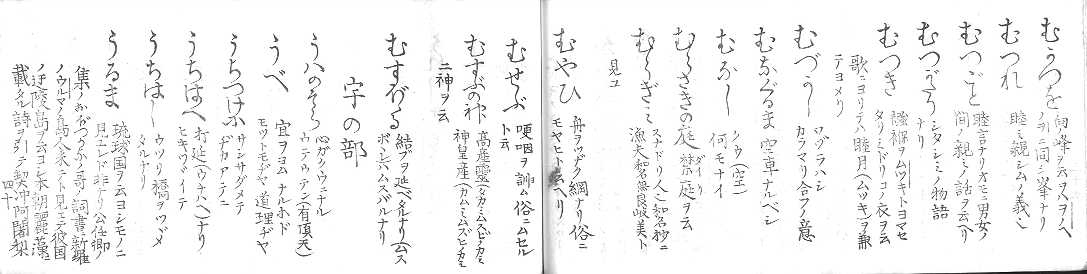 むかつを 向峯ヲ云ヲハヲヘ
ノヲニ同シ峯ナリ
むつれ 睦ミ親シムノ義也
むつごと 睦言ナリオモニ男女ノ
間ノ親ミノ話ヲ云ヘリ
むつがたり シタシミノ物語
ナリ
むつき 襁褓ヲムツキトヨマセ
タリミドリコノ衣ヲ云
歌ニヨリテハ睦月(ムツキ)ヲ兼
テヨメリ
むづかし ワヅラハシ
カラマリ合フノ意
むなぐるま 空車ナルベシ
むなし シウ(空)
何モナイ
むらさきの庭 禁庭ヲ云
むらぎみ スナドリ人ノ和名抄ニ
漁夫和名無良岐美ト
見ユ
むやひ 舟ヲツナグ綱ナリ俗ニ
モヤヒト云ヘリ
むせぶ 哽咽ヲ訓ム俗ニムセル
ト云
むすぶの神 高産靈(タカミムスビノカミ)
神皇産(カムミムズヒノカミ)
二神ヲ云
むすぼる 結ブヲ延ベタルナリ(ムス
ボレハムスバルナリ)
宇の部
うはのそら 心ガウハウニナル
ウテウテン(有頂天)
うべ 宜ヲヨム ナルホド
モツトモヂヤ 道理ヂヤ
うちつけ サシササグ
ヂカ
うちはへ 打延(ウチハヘ)ナリ
ヒキツヾイテ
うちはし ウツリ橋ヲツヾメ
タルナリ
うるま 琉球国ヲ云ヨシモノニ
見エレド非ナリ公任卿ノ
集ノ 詞書ニ新羅
ノウルマノ島人来ニト見エテ彼国
ノ迂陵島ヲ云コト本朝麗藻ニ
載タル詩ヲ引テ契沖阿闍梨
四十